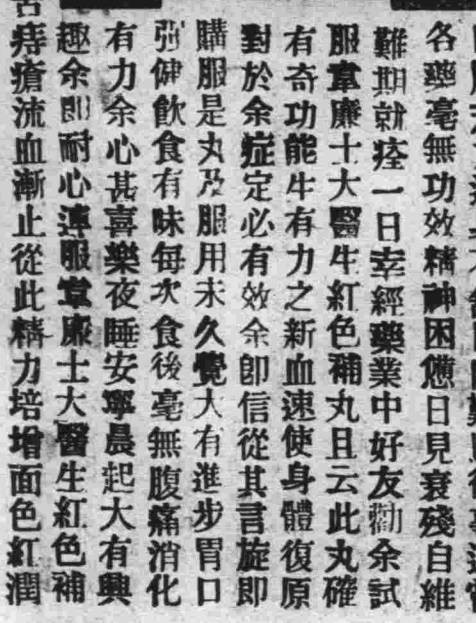 各藥毫無功效精神困憊日見衰殘自維
難期就痊一日幸經藥業中好友勸余試
服韋廉士大醫生紅色補丸且云此丸確
有奇功能生有力之新血速使身體復原
對於余症定必有效余卽信從其言旋即
購服是丸及服用未久覺大有進步胃口
强健飲食有味每次食後毫無腹痛消化
有力余心甚喜樂夜睡安寧晨起大有興
趣余卽耐心連服韋廉士大醫生紅色補
痔瘡流血漸止從此精力培增面色紅潤